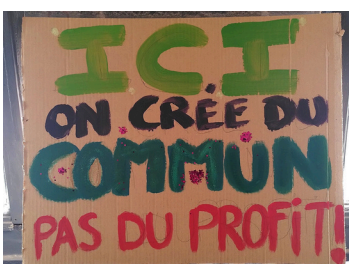 ICI
ON CRÉE DU
COMMUN
PAS DU PROFIT!